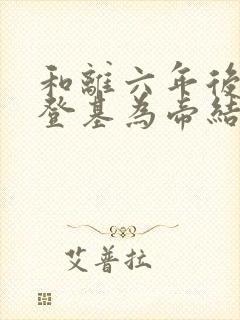 和離六年後
登基為帝結
艾普拉